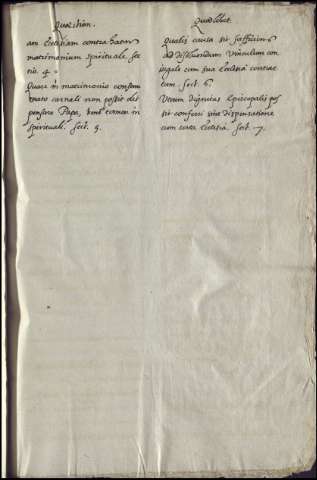 Quæstion.
am Ecclesiam contra hact
matrimonium spirituale. sec
tio. 4.
Quare in matrimonio consum
mato carnali non possit dis
pensare Papa, bene tamen in
spirituali. sect. 5.
Quodlibet.
Qualis causa sit sufficiens
ad dissolvendum vinculum con
iugale cum sua Ecclesia contrac
tum. sect. 6.
Utrum dignitas Episcopalis pos
sit conferri sine dispensatione
cum certa Ecclesia. sect. 7.